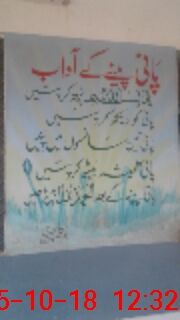 پانی پینے کے آداب
پانی بسم اللہ پڑھ کر پئیں
پانی کو دیکھ کر پئیں
پانی تین سانسوں میں پئیں
پانی ہمیشہ بیٹھ کر پئیں
پانی پینے کے بعد الحمد للہ
5-10-18 12:32